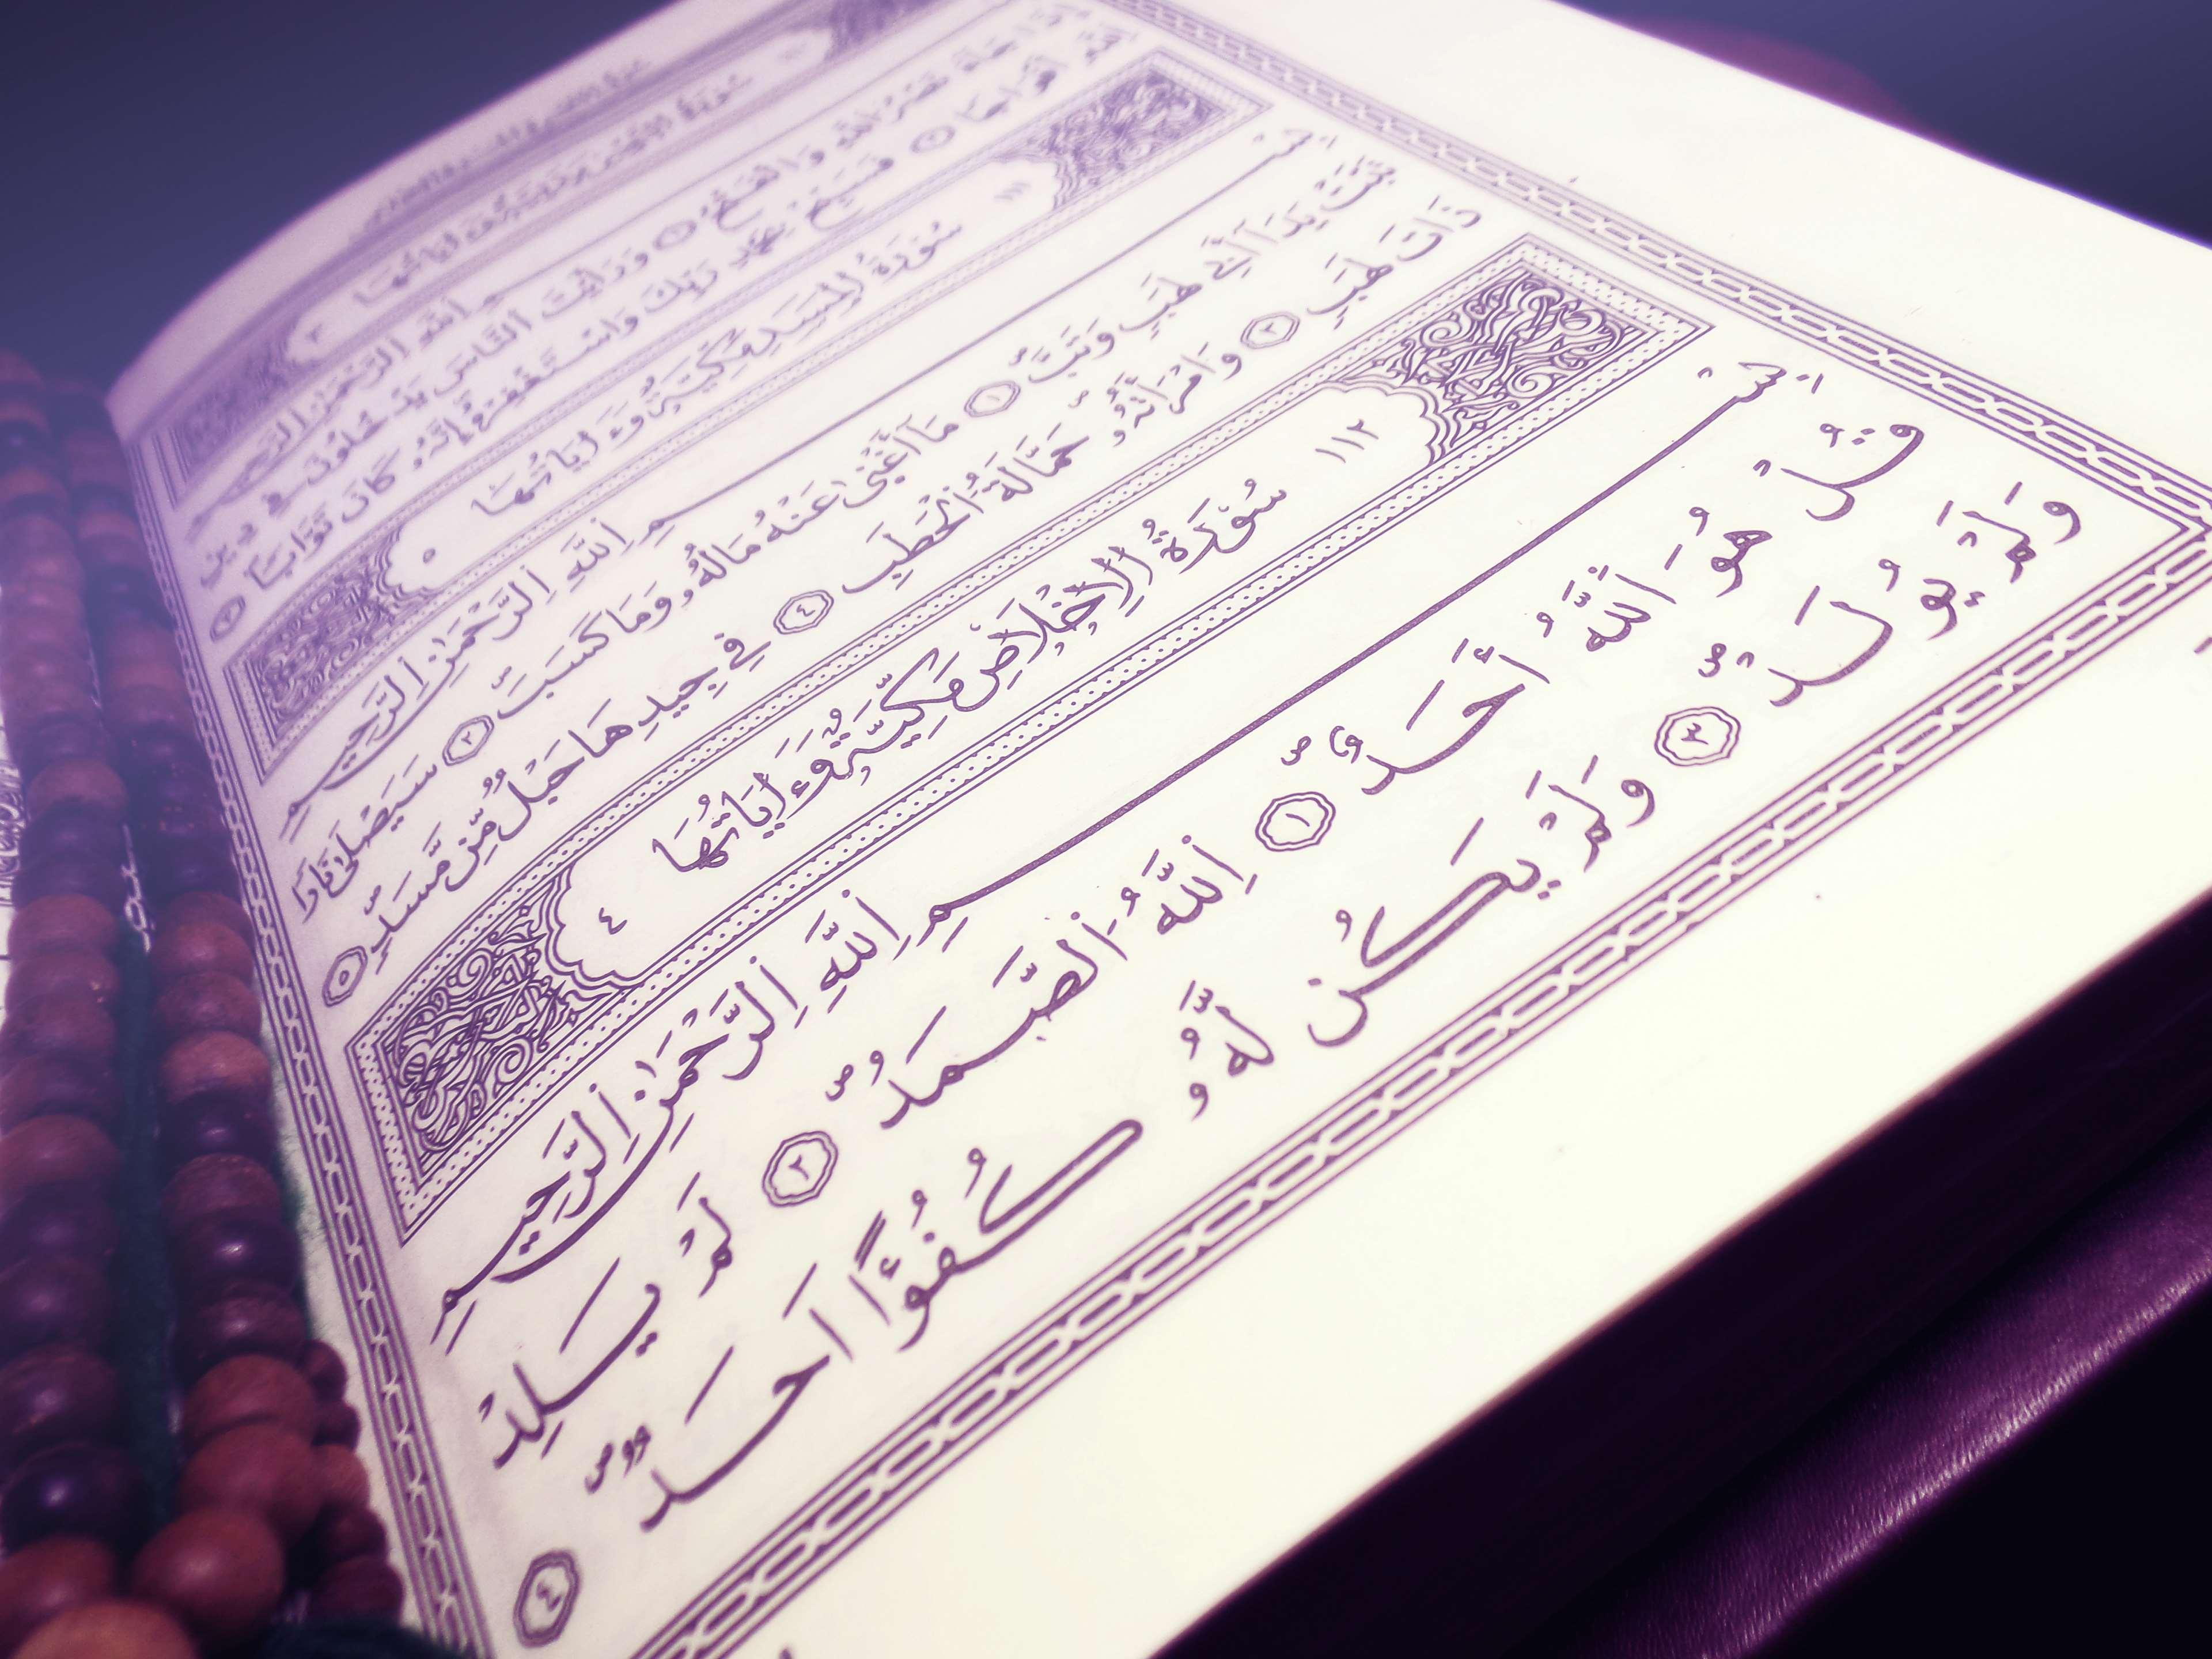 إِذَا جَاءَ نَصْرُ اللّٰهِ وَالْفَتْحُ ۝١ وَرَأَيْتَ النَّاسَ يَدْخُلُونَ فِي دِينِ
فَسَبِّحْ بِحَمْدِ رَبِّكَ وَاسْتَغْفِرْهُ إِنَّهُ كَانَ تَوَّابًا ۝٣
١١١ سُورَةُ الْمَسَدِ مَكِّيَّةٌ وَءَايَاتُهَا ٥
بِسْمِ اللّٰهِ الرَّحْمٰنِ الرَّحِيمِ
تَبَّتْ يَدَا أَبِي لَهَبٍ وَتَبَّ ۝١ مَا أَغْنَىٰ عَنْهُ مَالُهُ وَمَا كَسَبَ ۝٢ سَيَصْلَىٰ نَارًا
ذَاتَ لَهَبٍ ۝٣ وَامْرَأَتُهُ حَمَّالَةَ الْحَطَبِ ۝٤ فِي جِيدِهَا حَبْلٌ مِّن مَّسَدٍ ۝٥
١١٢ سُورَةُ الْإِخْلَاصِ مَكِّيَّةٌ وَءَايَاتُهَا ٤
بِسْمِ اللّٰهِ الرَّحْمٰنِ الرَّحِيمِ
قُلْ هُوَ اللّٰهُ أَحَدٌ ۝١ اَللّٰهُ الصَّمَدُ ۝٢ لَمْ يَلِدْ
وَلَمْ يُولَدْ ۝٣ وَلَمْ يَكُن لَّهُ كُفُؤًا أَحَدٌ ۝٤